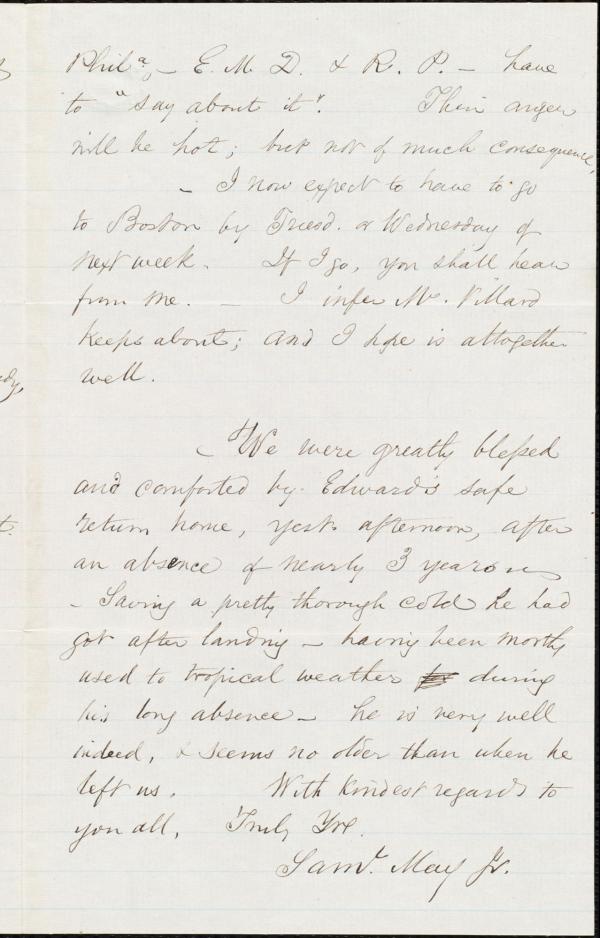 Phila, – E. M. D. & R. P. – have
to "say about it". Their anger
will be hot; but not of much consequence,
– I now expect to have to go
to Boston by Tuesd. or Wednesday of
next week. If I go, you shall hear
from me. – I infer Mr. Villard
keeps about; and I hope is altogether
well.
– We were greatly blessed
and comforted by Edward's safe
return home, yest. afternoon, after
an absence of nearly 3 years
– Saving a pretty thorough cold he had
got after landing – having been mostly
used to tropical weather during
his long absence – he is very well
indeed, & seems no older than when he
left us. With kindest regards to
you all, Truly Yrs.
Saml. May Jr.